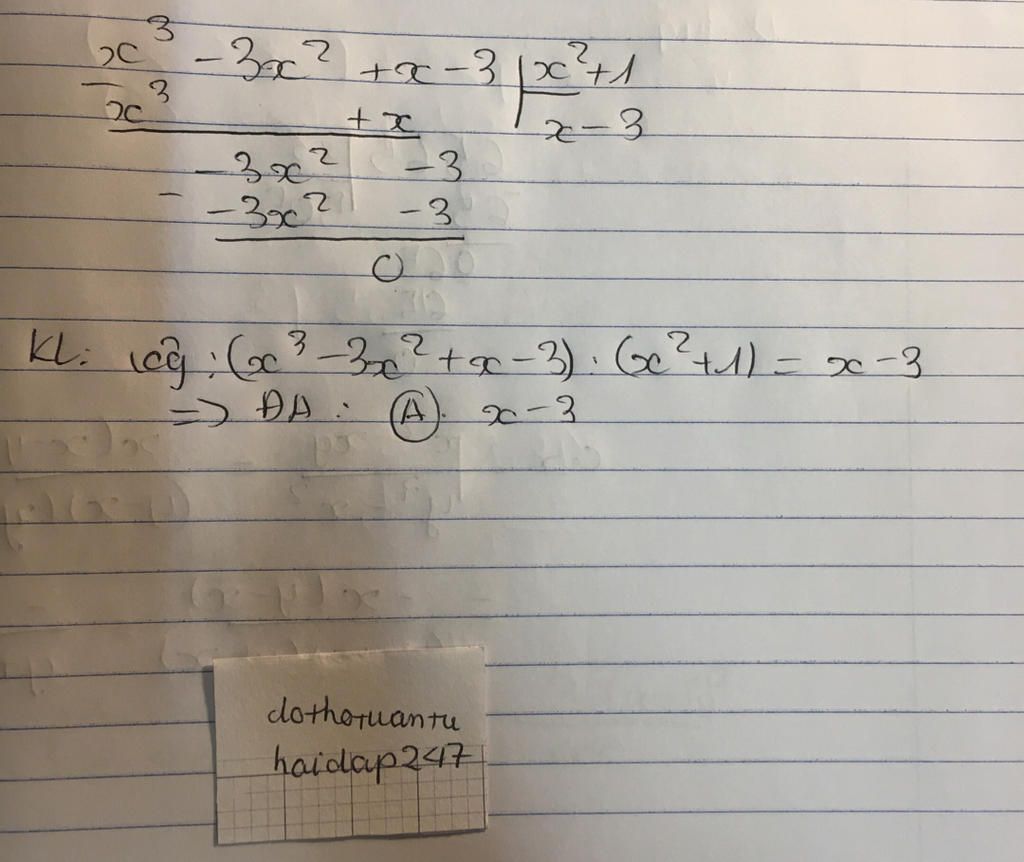 x³ - 3x² + x - 3 | x² + 1
- x³ + x | x - 3
-3x² - 3
- -3x² - 3
0
KL: (x³ - 3x² + x - 3) : (x² + 1) = x - 3
=> ĐA : A. x - 3
dothotuantu
haidap247